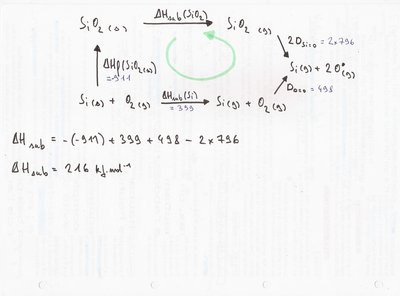 SiO₂ (s) ΔHsub(SiO₂) SiO₂ (g)
2D Si=O = 2×796
ΔHf(SiO₂(s))
=-911
Si(g) + 2O(g)
Si(s) + O₂(g) ΔHsub(Si) Si(g) + O₂(g)
= 399
D O=O = 498
ΔH sub = -(-911) + 399 + 498 - 2×796
ΔH sub = 216 kJ.mol⁻¹